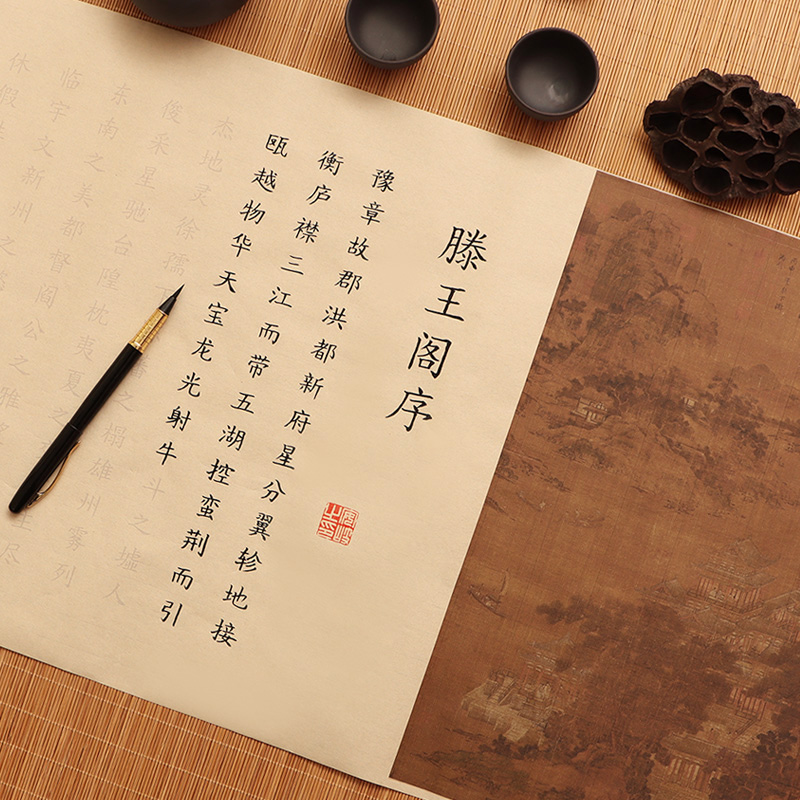 滕王阁序
豫章故郡洪都新府星分翼轸地接
衡庐襟三江而带五湖控蛮荆而引
瓯越物华天宝龙光射牛斗之墟人
杰地灵徐孺下蕃之榻雄州雾列
俊采星驰台隍枕夷夏之尽
东南之美都督阎公之雅
临宇文新州之
休假